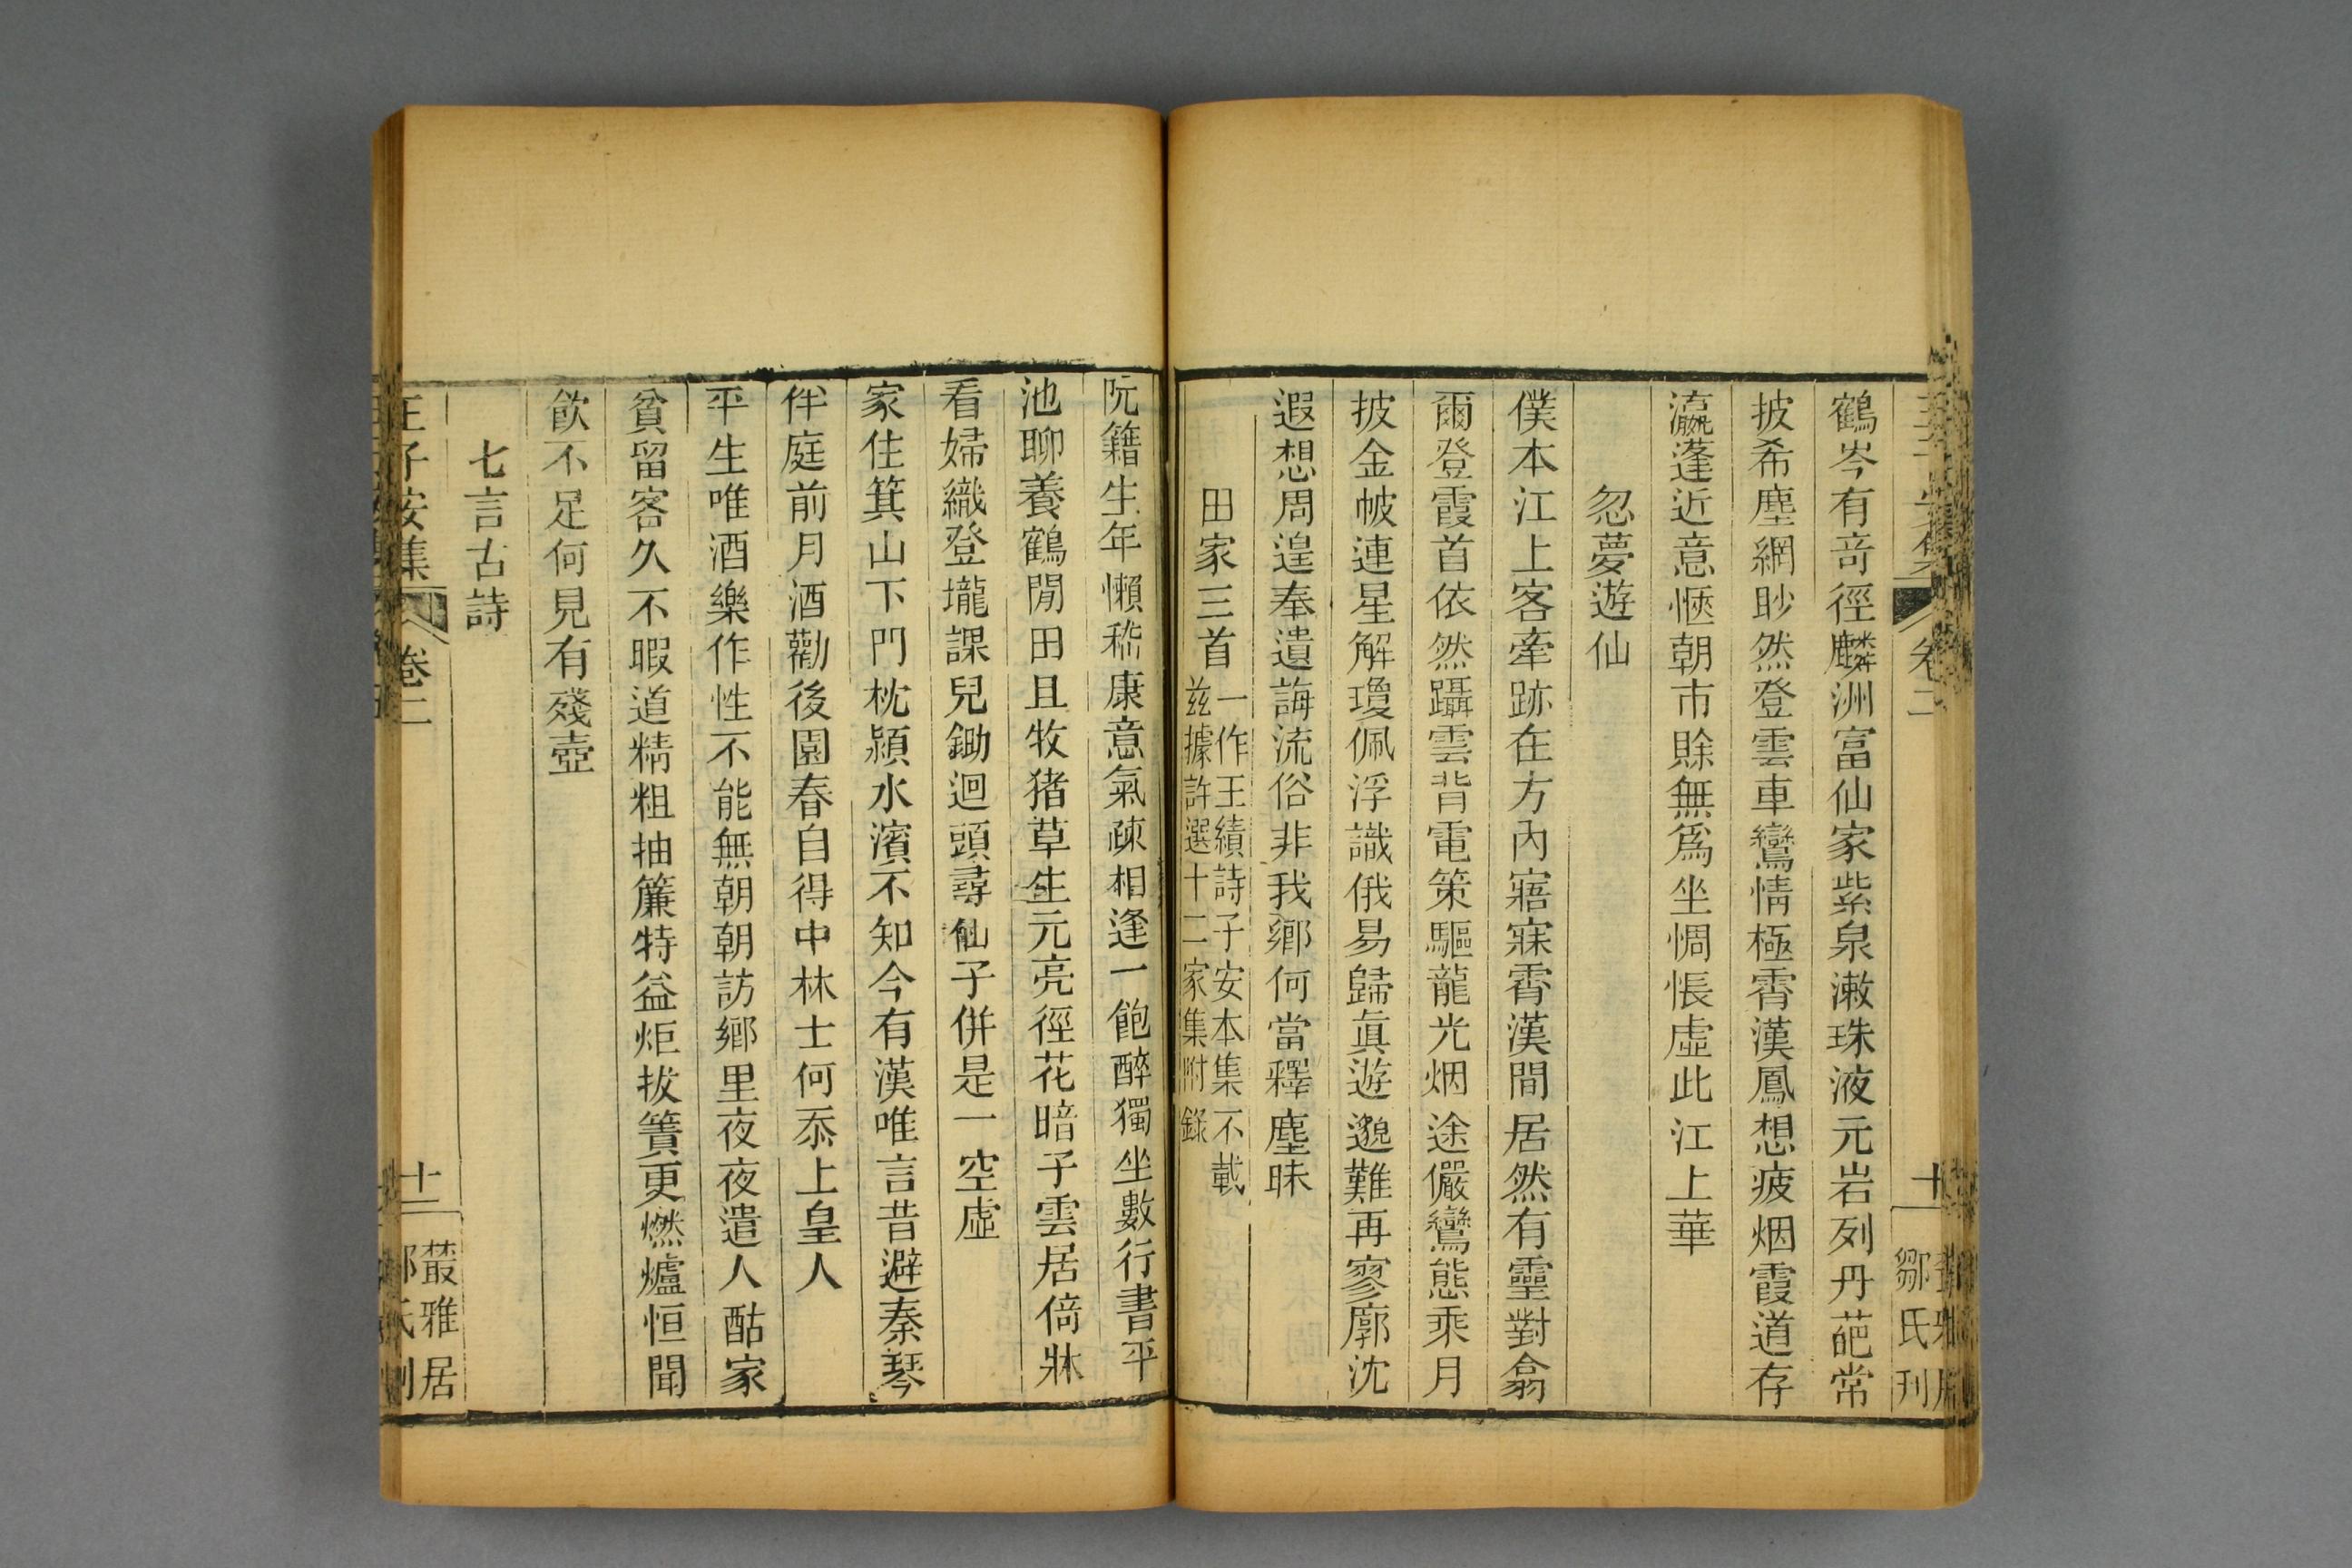 鶴岑有奇徑麟洲富仙家紫泉漱珠液元岩列丹葩常
披希塵網眇然登雲車鸞情極霄漢鳳想疲烟霞道存
瀛蓬近意愜朝市賖無爲坐惆悵虛此江上華
忽夢遊仙
僕本江上客牽跡在方內寤寐霄漢間居然有靈對翕
爾登霞首依然躡雲背電策驅龍光烟途儼鸞態乘月
披金帔連星解瓊佩浮識俄易歸眞遊邈難再寥廓沈
遐想周遑奉遺誨流俗非我鄉何當釋塵昧
田家三首
一作王績詩子安本集不載
茲據許選十二家集附錄
鄒氏刊
阮籍生年懶嵇康意氣疎相逢一飽醉獨坐數行書平
池聊養鶴閒田且牧猪草生元亮徑花暗子雲居倚牀
看婦織登壠課兒鋤迴頭尋仙子併是一空虛
家住箕山下門枕潁水濱不知今有漢唯言昔避秦琴
伴庭前月酒勸後園春自得中林士何忝上皇人
平生唯酒樂作性不能無朝朝訪鄉里夜夜遣人酤家
貧留客久不暇道精粗抽簾特益炬拔簀更燃爐恒聞
飲不足何見有殘壺
七言古詩
王子安集 卷二 十 叢雅居